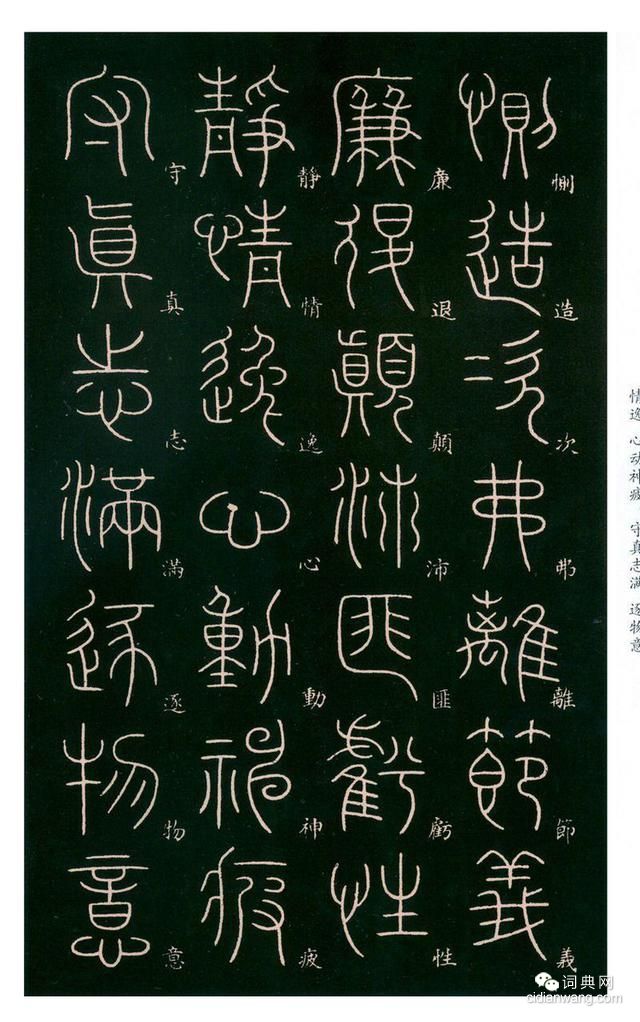 惻造次弗離節義
廉退顛沛匪虧性
靜情逸心動神疲
守真志滿逐物意
情逸 心动神疲 守真志满 逐物意
词典网
cidianwang.com